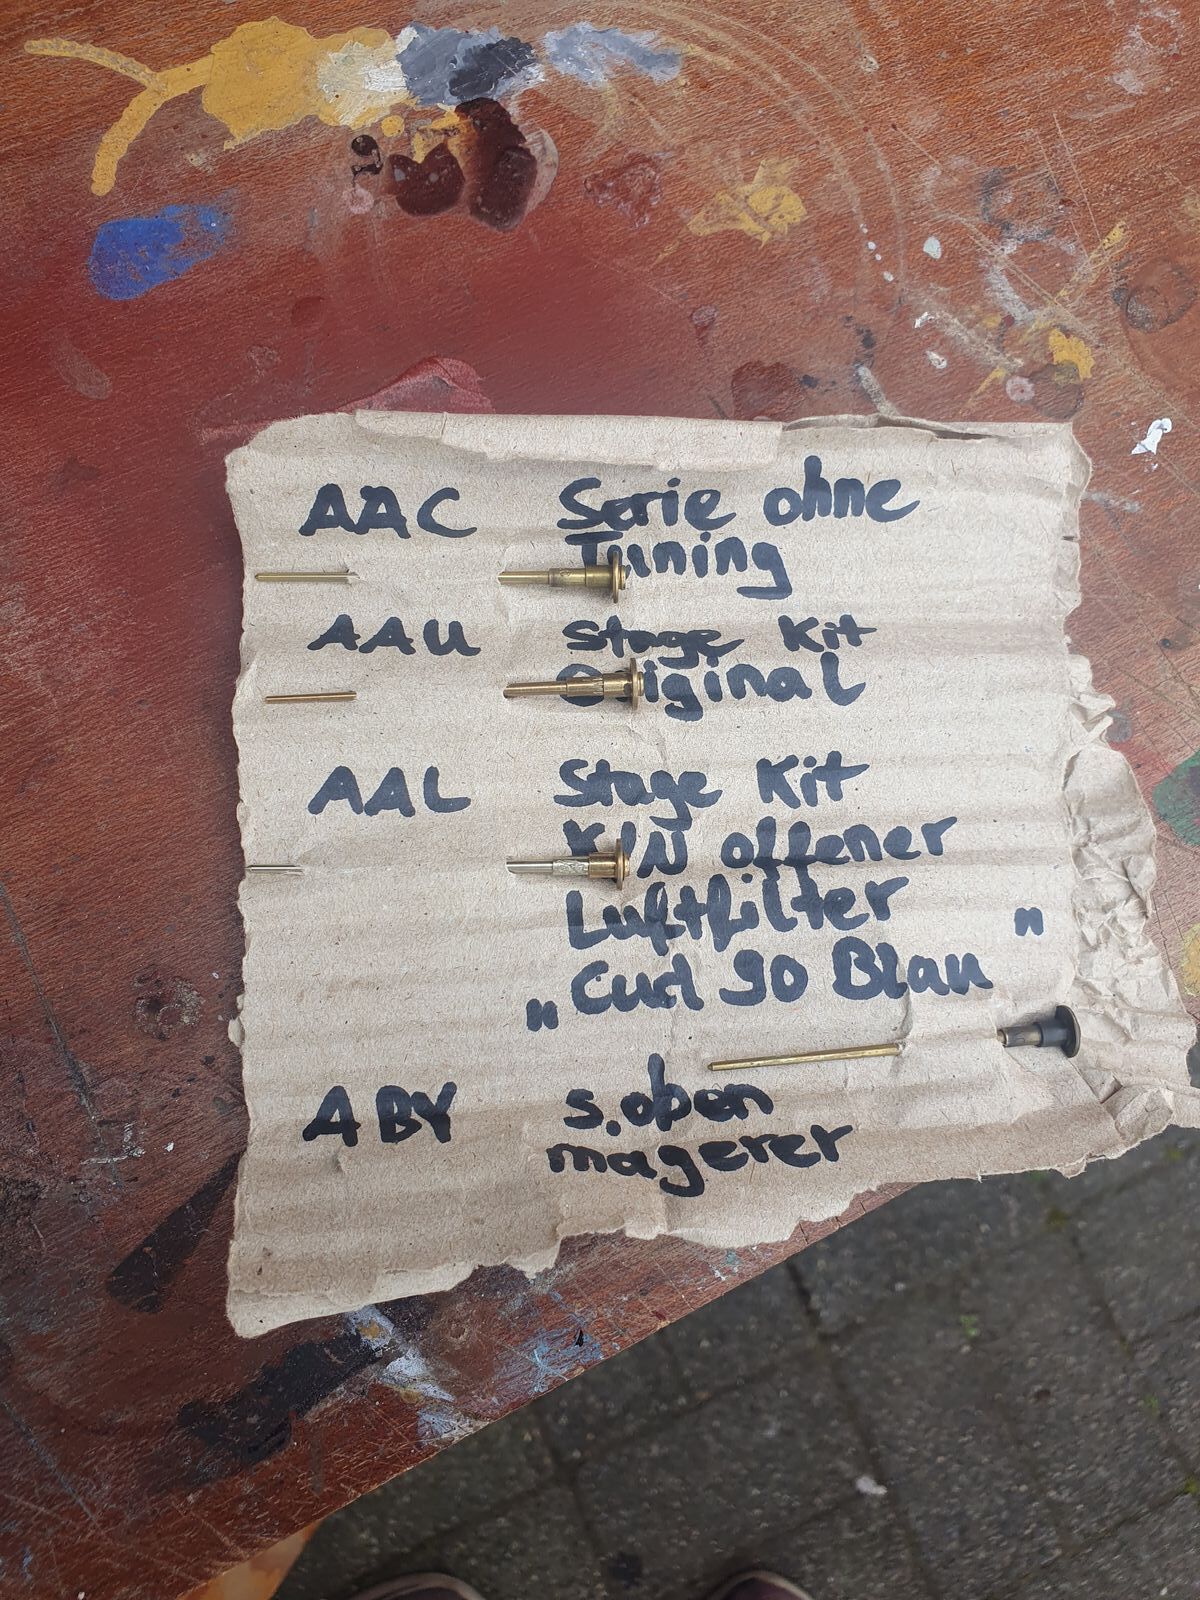 AAC Serie ohne
Tuning
AAU Stage Kit
Original
AAL Stage Kit
K/N offener
Luftfilter
"
" Curl 90 Blau
ABY s.oben
magerer